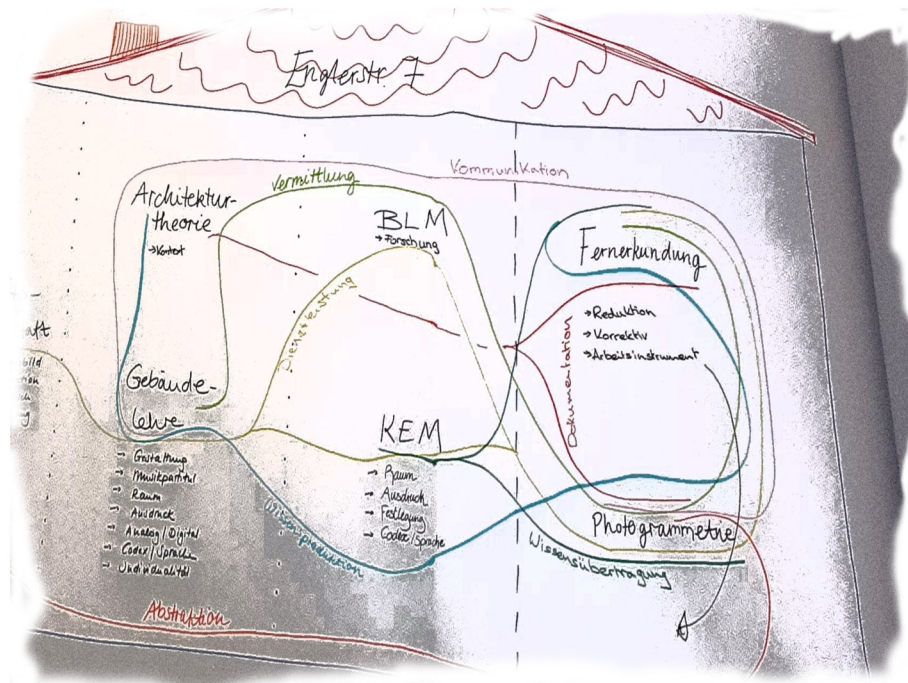 Englerstr. 7
Kommunikation
Vermittlung
Architektur-
theorie
BLM
→ Forschung
Fernerkundung
→ Reduktion
→ Korrektiv
→ Arbeitsinstrument
Dokumentation
Dienstleistung
aft
bild
Gebäude-
lehre
→ Gestaltung
→ Musikpartitur
→ Raum
→ Ausdruck
→ Analog/Digital
→ Codex/Sprache
→ Individualität
KEM
→ Raum
→ Ausdruck
→ Festlegung
→ Codex/Sprache
Wissensproduktion
Photogrammetrie
Wissensübertragung
Abstraktion
A